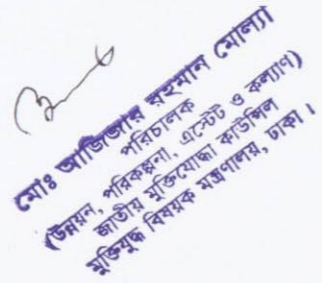 মোঃ আজিজার রহমান মোল্যা
পরিচালক
(উন্নয়ন, পরিকল্পনা, এস্টেট ও কল্যাণ)
জাতীয় মুক্তিযোদ্ধা কাউন্সিল
মুক্তিযুদ্ধ বিষয়ক মন্ত্রণালয়, ঢাকা।